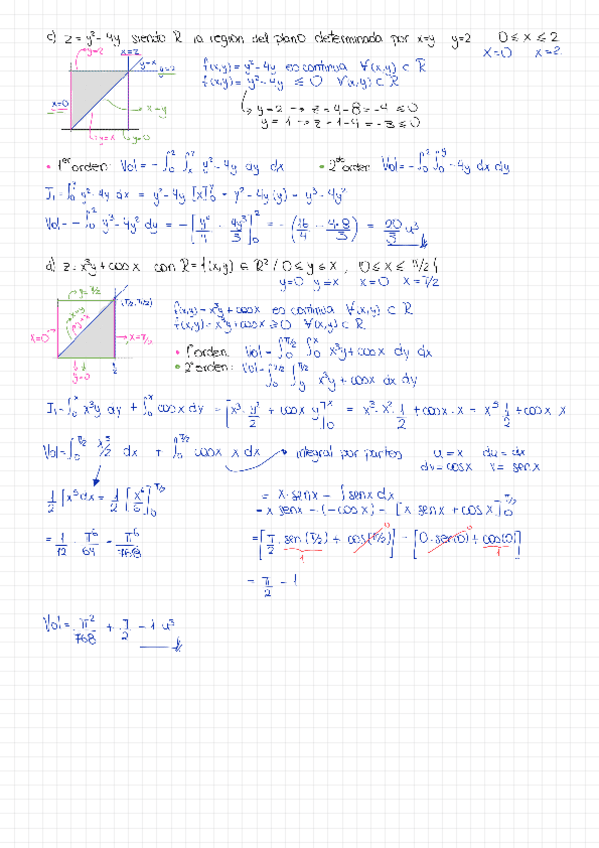 c) z = y² - 4y siendo R la región del plano determinada por x=y y=2 0 ≤ x ≤ 2
x=0 x=2
y=2 x=2
y=x
y=2
x=0
x=y
y=x y=0
f(x,y) = y² - 4y es continua ∀(x,y) ⊂ R
f(x,y) = y² - 4y ≤ 0 ∀(x,y) ⊂ R
y=2 → z = 4 - 8 = -4 ≤ 0
y=1 → z = 1 - 4 = -3 ≤ 0
• 1er orden: Vol = - ∫₀² ∫ₓ² y² - 4y dy dx • 2do orden: Vol = - ∫₀² ∫₀ʸ y² - 4y dx dy
I₁ = ∫₀ʸ y² - 4y dx = y² - 4y [x]₀ʸ = y² - 4y (y) = y³ - 4y²
Vol = - ∫₀² y³ - 4y² dy = - [y⁴/4 - 4y³/3]₀² = - (16/4 - 4·8/3) = 20/3 u³
d) z = x³y + cos x con R = {(x,y) ∈ R² / 0 ≤ y ≤ x, 0 ≤ x ≤ π/2}
y=0 y=x x=0 x=π/2
y=π/2
(π/2, π/2)
x=y
y=x
x=0
x=π/2
y=0
π/2
f(x,y) = x³y + cos x es continua ∀(x,y) ⊂ R
f(x,y) = x³y + cos x ≥ 0 ∀(x,y) ⊂ R
• 1º orden: Vol = ∫₀^π/2 ∫₀ˣ x³y + cos x dy dx
• 2º orden: Vol = ∫₀^π/2 ∫ᵧ^π/2 x³y + cos x dx dy
I₁ = ∫₀ˣ x³y dy + ∫₀ˣ cos x dy = [x³ · y²/2 + cos x y]₀ˣ = x³ · x² · 1/2 + cos x · x = x⁵ 1/2 + cos x x
Vol = ∫₀^π/2 x⁵/2 dx + ∫₀^π/2 cos x x dx → integral por partes u = x du = dx
dv = cos x v = sen x
1/2 ∫ x⁵ dx = 1/2 [x⁶/6]₀^π/2 = x · sen x - ∫ sen x dx
= x sen x - (-cos x) = [x sen x + cos x]₀^π/2
= 1/12 · π⁶/64 = π⁶/768 = [π/2 · sen(π/2) + cos(π/2)] - [0 · sen(0) + cos(0)]
0 0
1 1
= π/2 - 1
Vol = π²/768 + π/2 - 1 u³